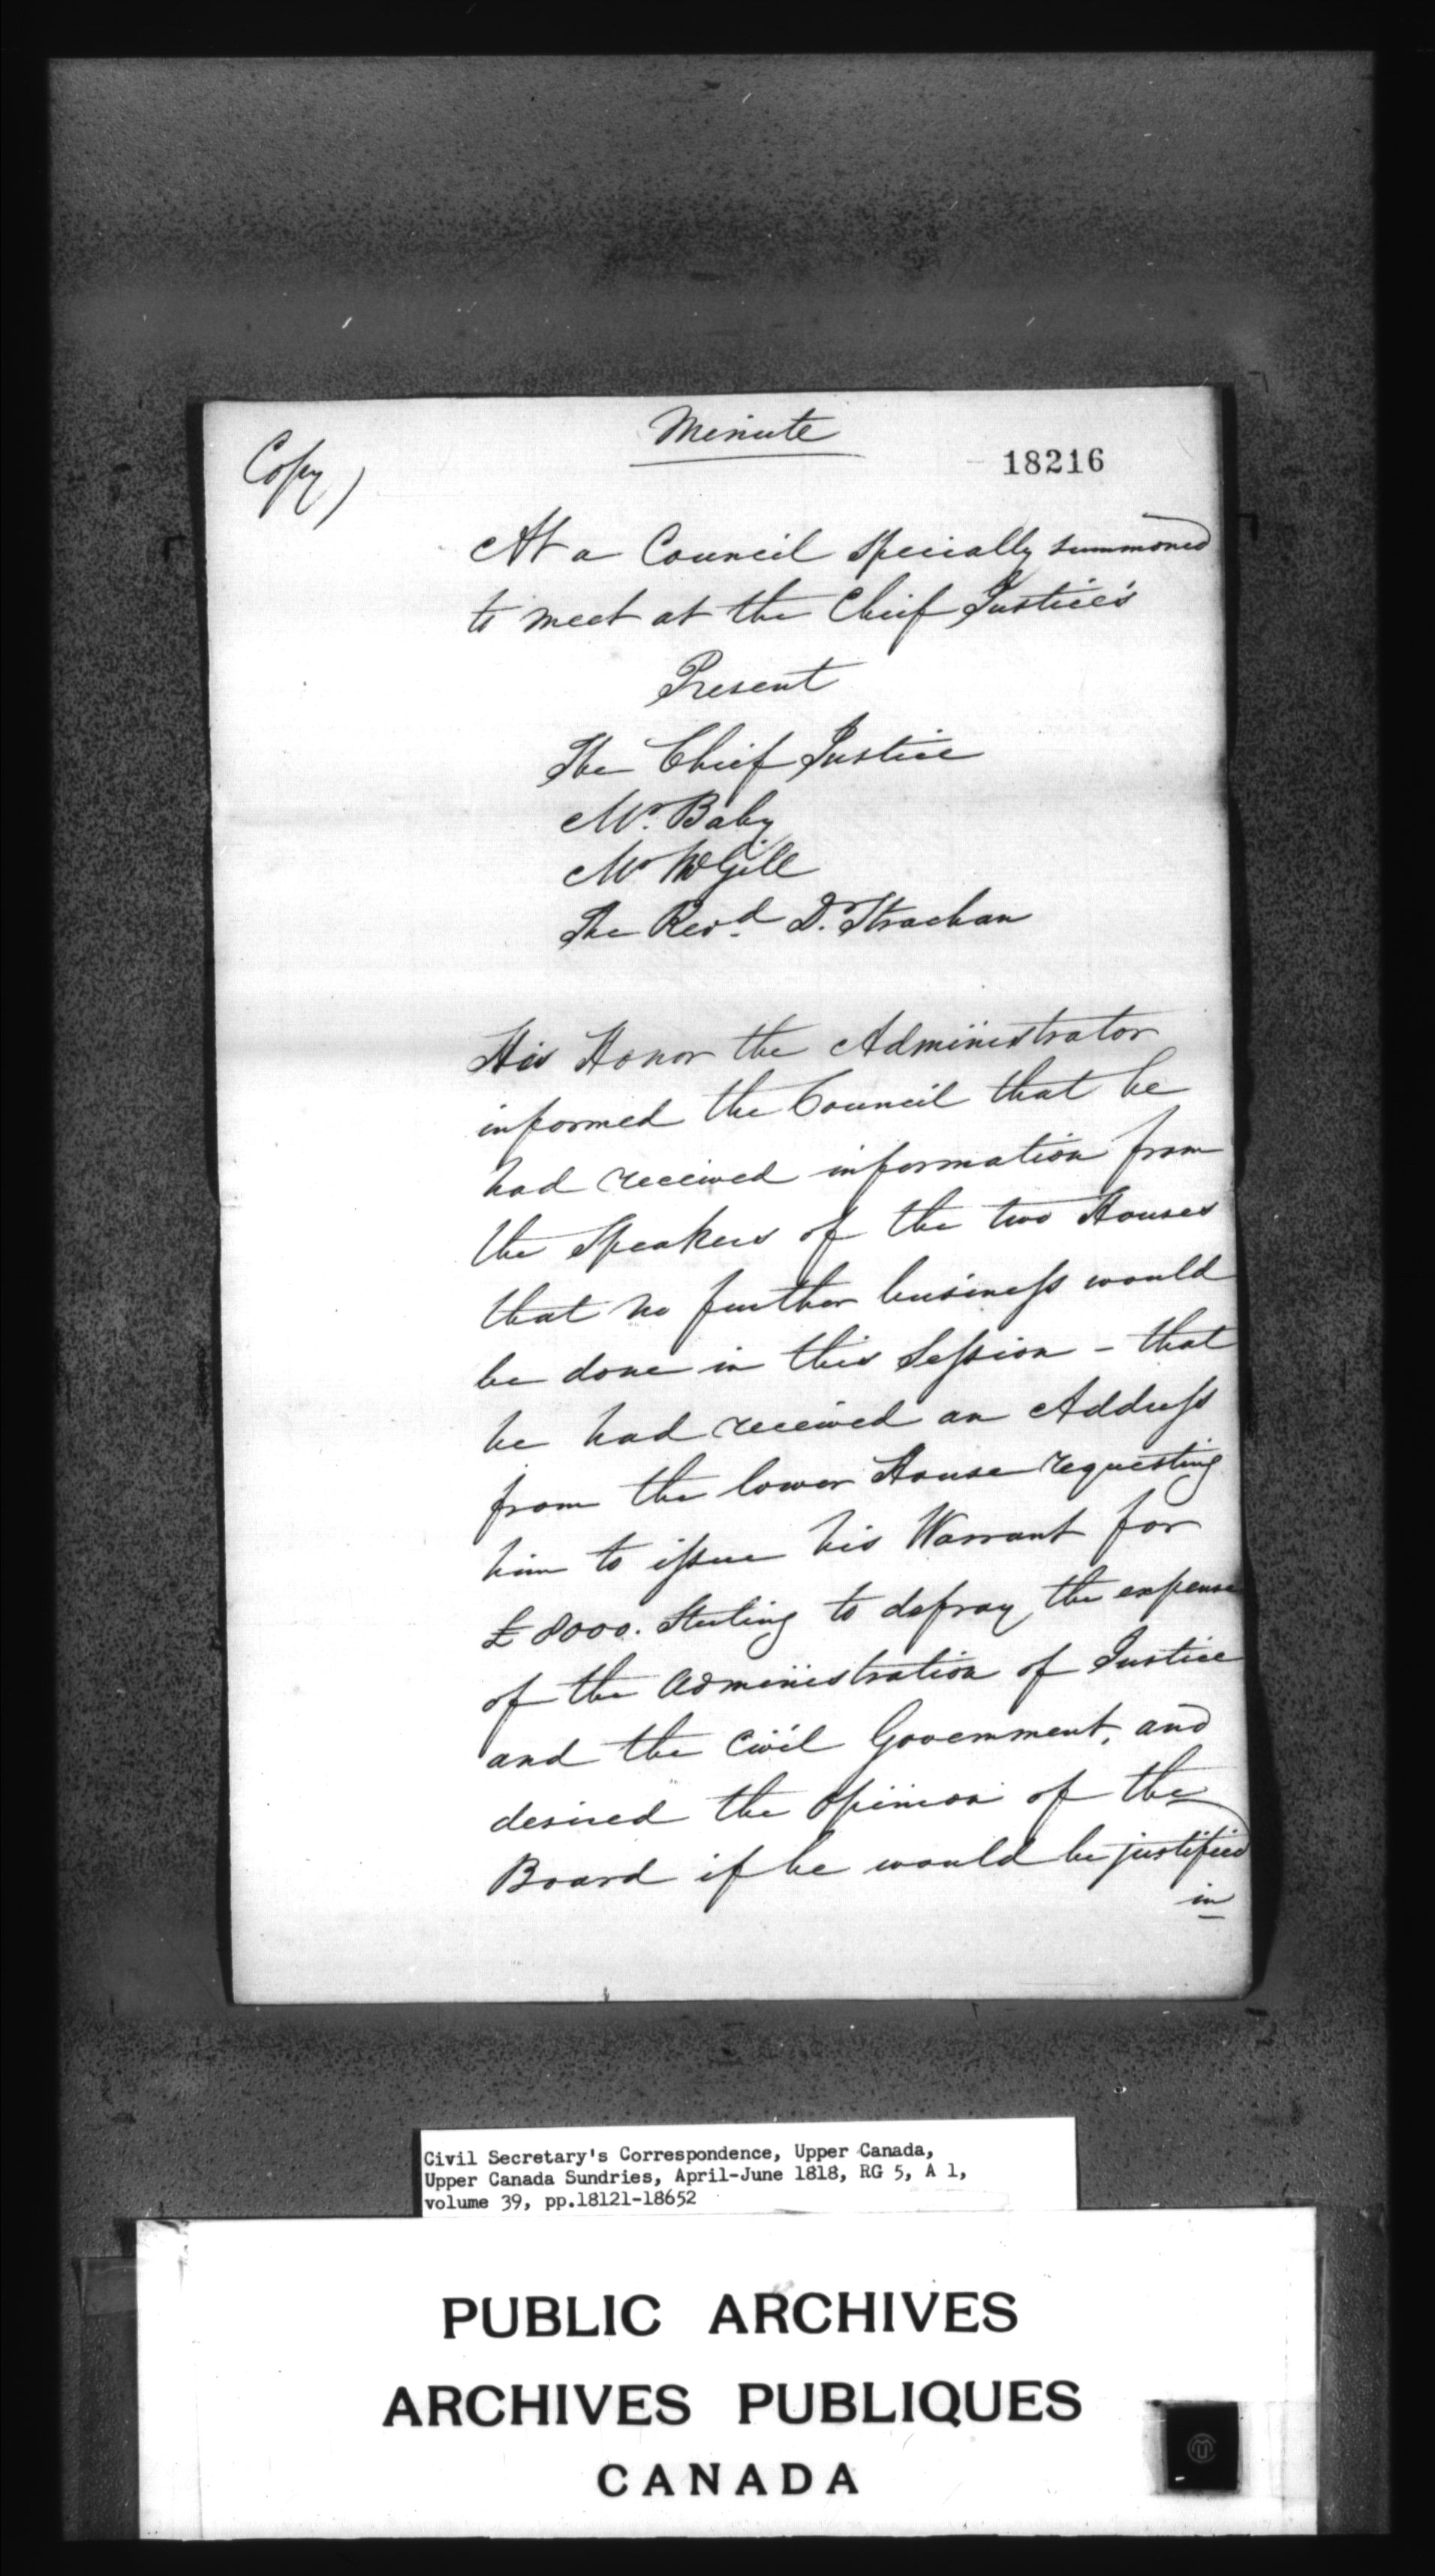 Minute
Copy)
18216
At a Council specially summoned
to meet at the Chief Justice's
Present
The Chief Justice
Mr. Baby
Mr McGill
The Revd. Dr. Strachan
His Honor the Administrator
informed the Council that he
had received information from
the Speakers of the two Houses
that no further business would
be done in this Session - that
he had received an Address
from the lower House requesting
him to issue his Warrant for
£8000. Sterling to defray the expense
of the administration of Justice
and the Civil Government, and
desired the opinion of the
Board if he would be justified
in
Civil Secretary's Correspondence, Upper Canada,
Upper Canada Sundries, April-June 1818, RG 5, A 1,
volume 39, pp.18121-18652
PUBLIC ARCHIVES
ARCHIVES PUBLIQUES
CANADA